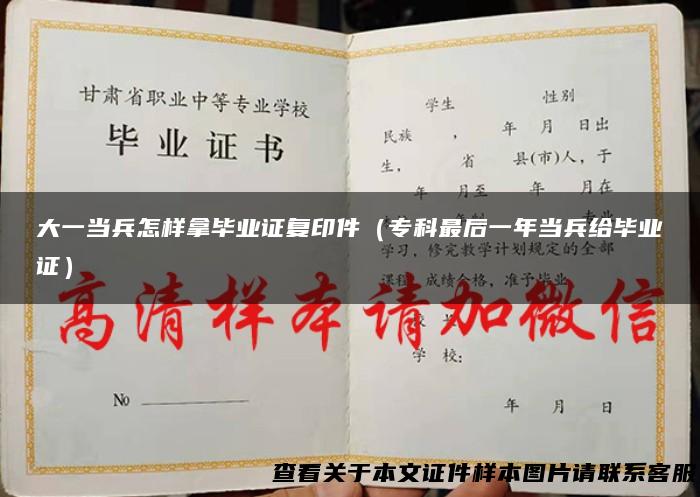 甘肃省职业中等专业学校
毕业证书
No
学生 性别
民族 ， 年 月 日出
生， 省 县(市)人，于
年 月至 年 月在
专业
学习，修完教学计划规定的全部
课程，成绩合格，准予毕业。
学 校：
年 月 日
大一当兵怎样拿毕业证复印件（专科最后一年当兵给毕业
证）
高清样本请加微信
查看关于本文证件样本图片请联系客服